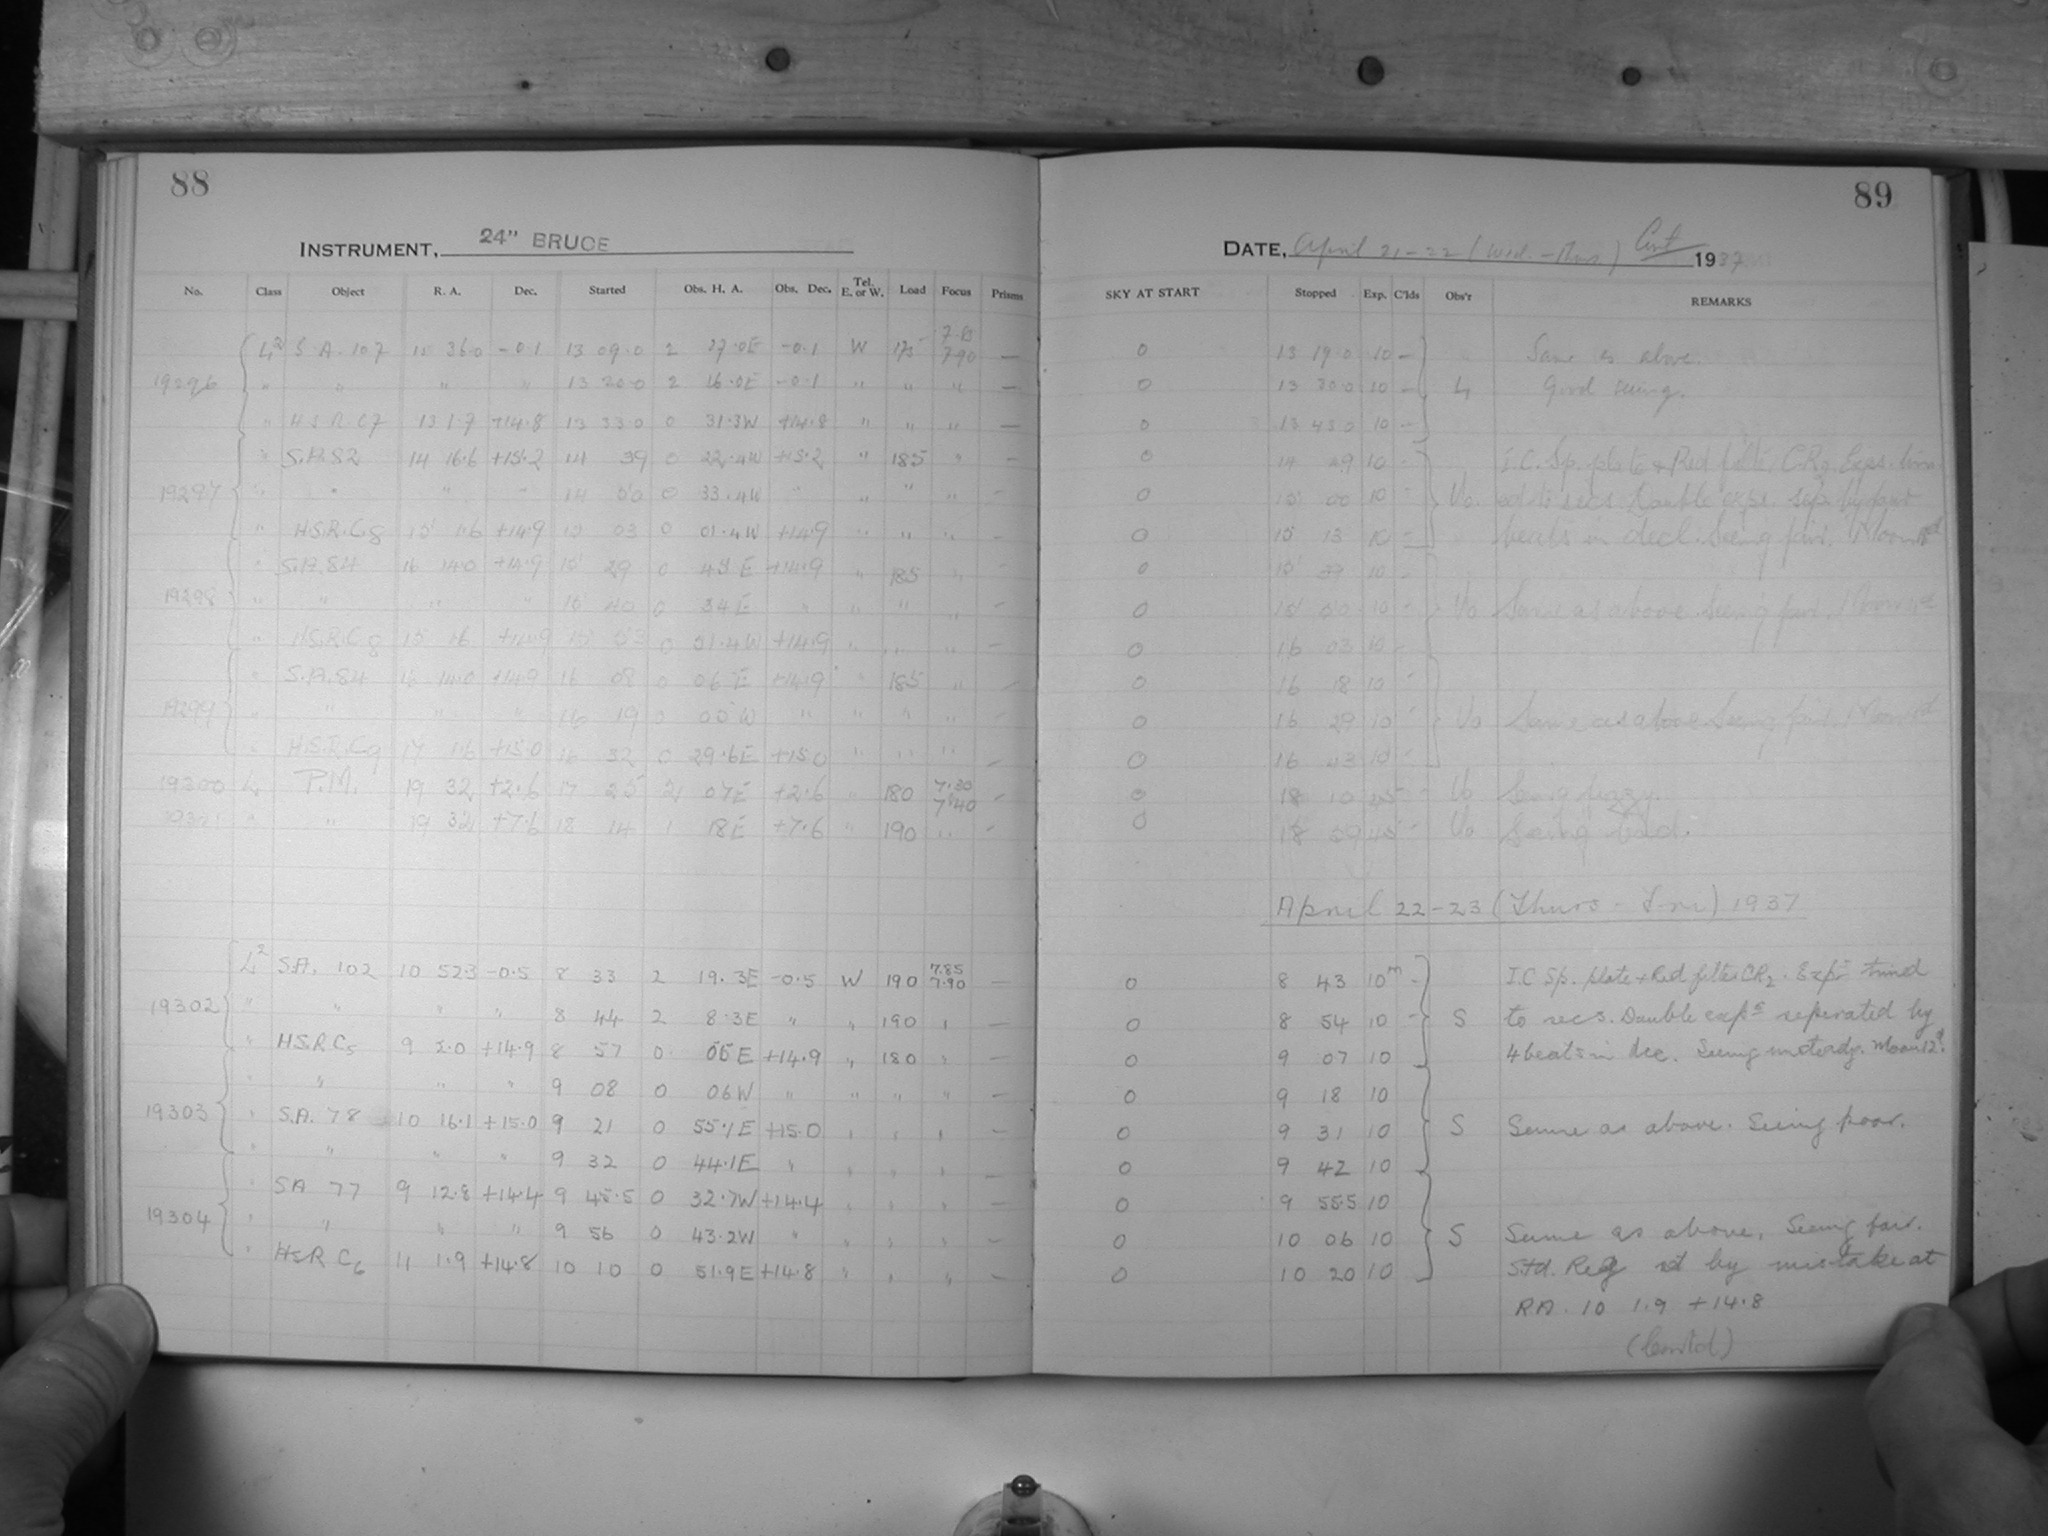 88
INSTRUMENT, 24" BRUCE
No. Class Object R. A. Dec. Started Obs. H. A. Obs. Dec. Tel. E. or W. Load Focus Prisms
7.85
L² S A. 107 15 36.0 -0.1 13 09.0 2 27.0E -0.1 W 175 7.90 —
19296 " " " " 13 20.0 2 16.0E -0.1 " " " —
" H S R C7 13 1.7 +14.8 13 33.0 0 31.3W +14.8 " " " —
" S.A.82 14 16.6 +15.2 14 39 0 22.4W +15.2 " 185 " —
19297 " " " " 14 50 0 33.4W " " " " —
" H.S.R.C8 15 1.6 +14.9 15 03 0 01.4W +14.9 " " " —
" S.A.84 16 14.0 +14.9 15 29 0 45 E +14.9 " 185 " —
19298 " " " " 15 40 0 34E " " " " —
" H.S.R.C8 15 16 +14.9 15 53 0 51.4W +14.9 " " " —
" S.A.84 16 14.0 +14.9 16 08 0 06 E +14.9 " 185 " —
19299 " " " " 16 19 0 05 W " " " " —
" H.S.R.C9 17 1.6 +15.0 16 32 0 29.6E +15.0 " " " —
19300 L P.M. 19 32 +2.6 17 25 2 07E +2.6 " 180 7.30 7.40 —
19301 " " 19 32 +7.6 18 14 1 18E +7.6 " 190 " —
L² S.A. 102 10 52.3 -0.5 8 33 2 19.3E -0.5 W 190 7.85 7.90 —
19302 " " " " 8 44 2 8.3E " " 190 " —
" H.S.R.C5 9 2.0 +14.9 8 57 0 05E +14.9 " 180 " —
" " " " 9 08 0 06W " " " " —
19303 " S.A. 78 10 16.1 +15.0 9 21 0 55.1E +15.0 " " " —
" " " " 9 32 0 44.1E " " " " —
" SA 77 9 12.8 +14.4 9 45.5 0 32.7W +14.4 " " " —
19304 " " " " 9 56 0 43.2W " " " " —
" HSR C6 11 1.9 +14.8 10 10 0 51.9E +14.8 " " " —
89
DATE, April 21-22 (Wed.-Thurs.) Cont 1937
SKY AT START Stopped Exp. C'lds Obs'r REMARKS
0 13 19.0 10 — Same as above.
0 13 30.0 10 — L Good seeing.
0 13 43.0 10 —
0 14 49 10 - I.C. Sp. plate + Red filter CR2 Exps. timed
0 15 00 10 - Vo. to secs. Double exps. sep. by four
0 15 13 10 - beats in decl. Seeing fair. Moon
0 15 39 10 -
0 15 50 10 - Vo Same as above. Seeing fair. Moon
0 16 03 10 -
0 16 18 10 -
0 16 29 10 - Vo Same as above Seeing fair. Moon
0 16 43 10 -
0 18 10 45 - Vo Seeing fuzzy.
0 18 59 45 - Vo Seeing bad.
April 22-23 (Thurs - Fri) 1937
0 8 43 10m - I.C Sp. plate + Red filter CR2. Exps timed
0 8 54 10 - S to secs. Double exps seperated by
0 9 07 10 4 beats in dec. Seeing unsteady. Moon 12d.
0 9 18 10
0 9 31 10 S Same as above. Seeing poor.
0 9 42 10
0 9 55.5 10
0 10 06 10 S Same as above, Seeing fair.
0 10 20 10 Std. Reg set by mistake at
RA. 10 1.9 +14.8
(Contd)